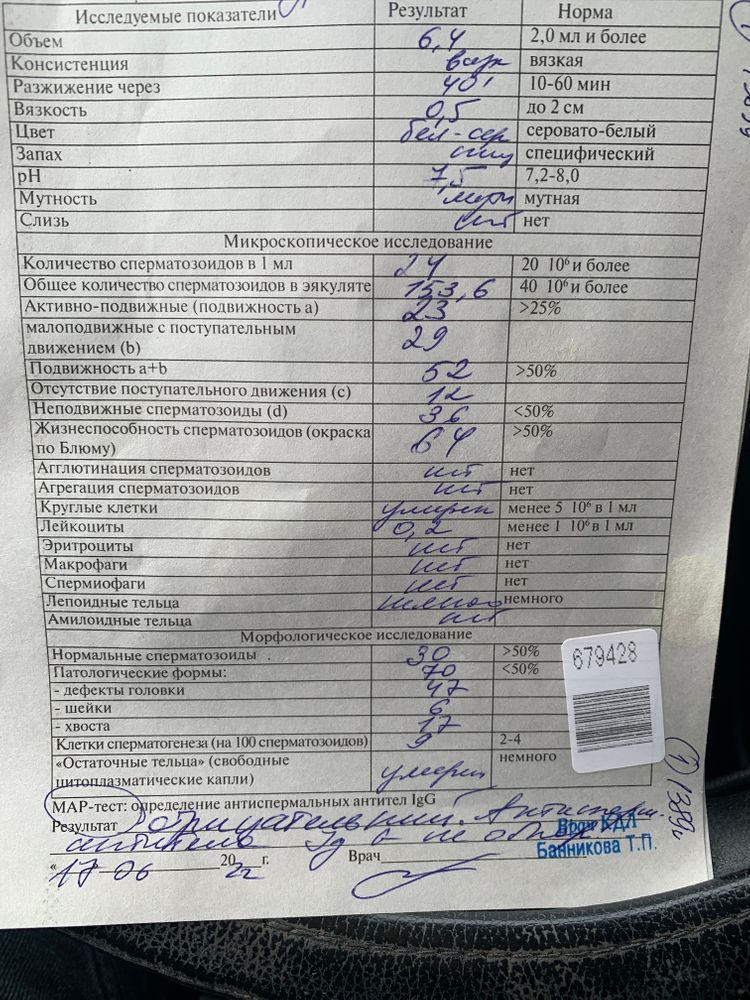 Исследуемые показатели Результат Норма
Объем 6,4 2,0 мл и более
Консистенция вязк вязкая
Разжижение через 40' 10-60 мин
Вязкость 0,5 до 2 см
Цвет бел-сер серовато-белый
Запах спец специфический
pH 7,5 7,2-8,0
Мутность мутн мутная
Слизь нет нет
Микроскопическое исследование
Количество сперматозоидов в 1 мл 24 20 10⁶ и более
Общее количество сперматозоидов в эякуляте 153,6 40 10⁶ и более
Активно-подвижные (подвижность a) 23 >25%
малоподвижные с поступательным
движением (b) 29
Подвижность a+b 52 >50%
Отсутствие поступательного движения (c) 12
Неподвижные сперматозоиды (d) 36 <50%
Жизнеспособность сперматозоидов (окраска
по Блюму) 64 >50%
Агглютинация сперматозоидов нет нет
Агрегация сперматозоидов нет нет
Круглые клетки умерен менее 5 10⁶ в 1 мл
Лейкоциты 0,2 менее 1 10⁶ в 1 мл
Эритроциты нет нет
Макрофаги нет нет
Спермиофаги нет нет
Лепоидные тельца немного немного
Амилоидные тельца нет
Морфологическое исследование
Нормальные сперматозоиды . 30 >50%
Патологические формы: 70 <50%
- дефекты головки 47
- шейки 6
- хвоста 17
Клетки сперматогенеза (на 100 сперматозоидов) 9 2-4
«Остаточные тельца» (свободные
цитоплазматические капли) умерен немного
679428
МАР-тест: определение антиспермальных антител IgG
Результат отрицательный. Антисперм.
антитела Ig G не обнар
« 17 » 06 2022 г. Врач
Врач КДЛ
Банникова Т.П.